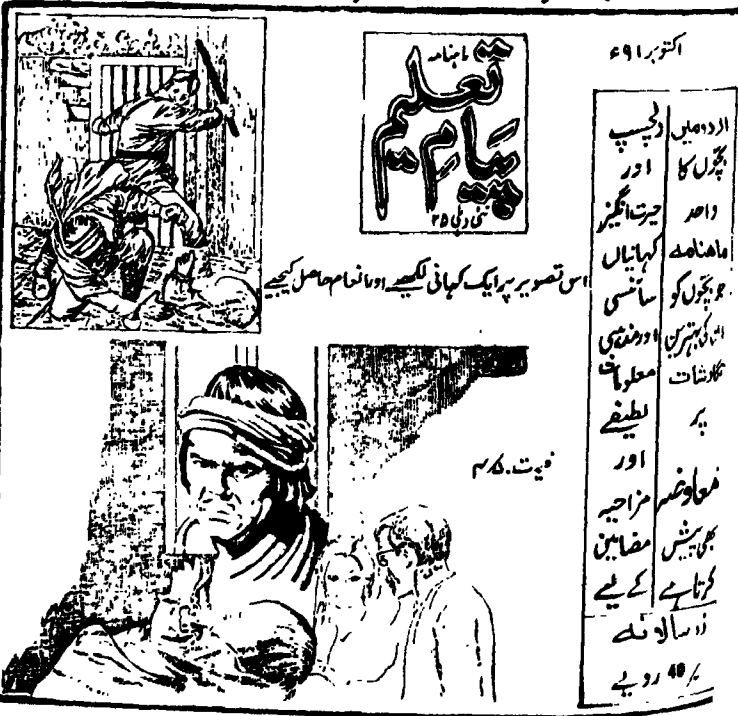 اکتوبر ۹۱ء
ماہنامہ
تعلیم
پیَامِ
نئی دہلی ۲۵
اس تصویر پر ایک کہانی لکھیے اور انعام حاصل کیجیے
قیمت
اردو میں
بچّوں کا
واحد
ماھنامہ
جو بچّوں کو
ان کی بہترین
نگارشات
پر
معاوضہ
بھی پیش
کرتا ہے
دلچسپ
اور
حیرت انگیز
کہانیاں
سائنسی
اور مذہبی
معلومات
لطیفے
اور
مزاحیہ
مضامین
کے لیے
زر سالانہ
40/ روپے